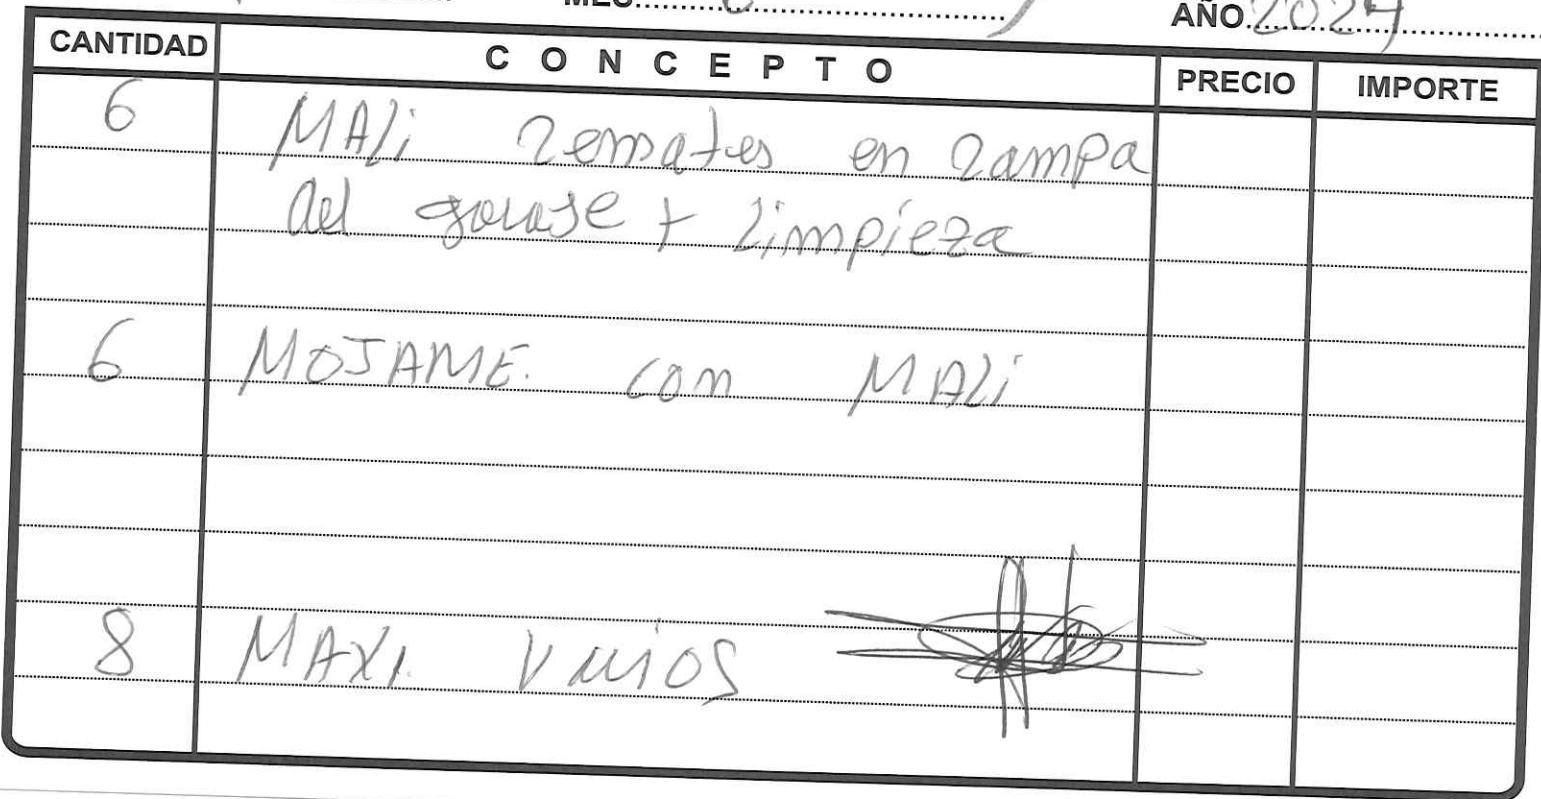 MES
AÑO 2024
CANTIDAD CONCEPTO PRECIO IMPORTE
6 MALi Remates en Rampa
del garaje + Limpieza
6 MOJAME. con MALi
8 MAXI. VARIOS